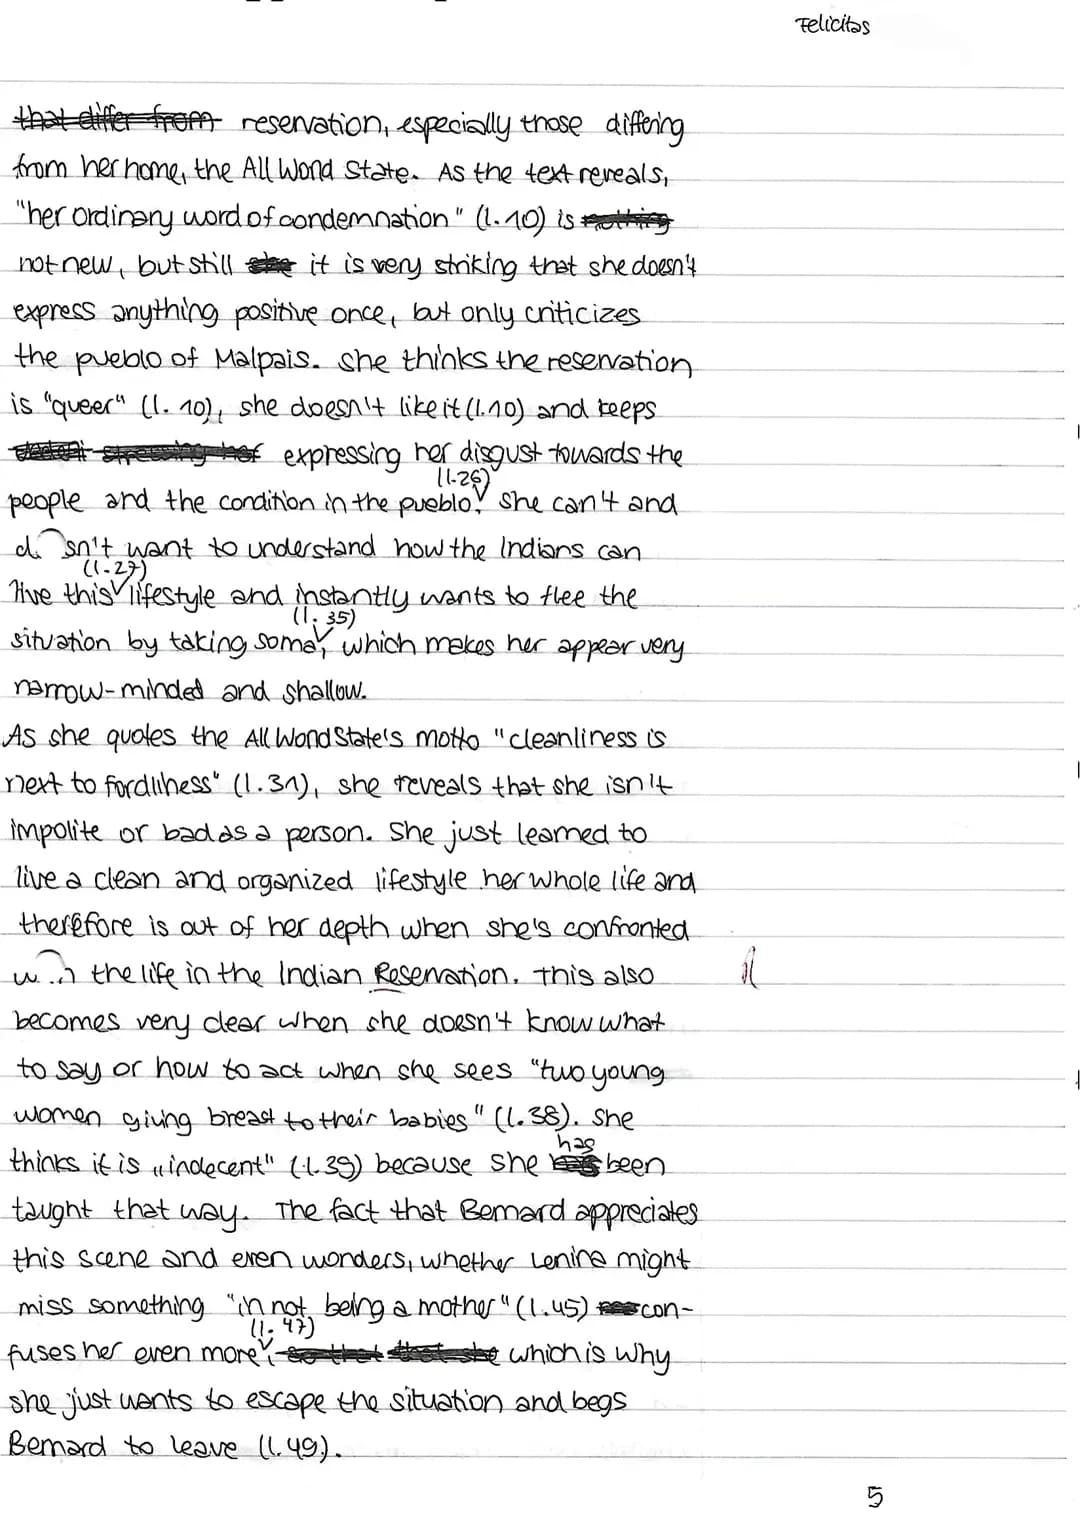 Felicitas
that differ from reservation, especially those differing
from her home, the All World State. As the text reveals,
"her ordinary word of condemnation" (l. 10) is nothing
not new, but still she it is very striking that she doesn't
express anything positive once, but only criticizes
the pueblo of Malpais. She thinks the reservation
is "queer" (l. 10), she doesn't like it (l.10) and keeps
stressing her expressing her disgust towards the
(l.26)
people and the condition in the pueblo. She can't and
d sn't want to understand how the Indians can
(l.27)
live this lifestyle and instantly wants to flee the
(l. 35)
situation by taking soma, which makes her appear very
narrow-minded and shallow.
As she quotes the All World State's motto "cleanliness is
next to fordliness" (l.31), she reveals that she isn't
impolite or bad as a person. She just learned to
live a clean and organized lifestyle her whole life and
therefore is out of her depth when she's confronted
w h the life in the Indian Reservation. This also
becomes very clear when she doesn't know what
to say or how to act when she sees "two young
women giving breast to their babies" (l.38). She
has
thinks it is „indecent" (l.39) because she been
taught that way. The fact that Bernard appreciates
this scene and even wonders, whether Lenina might
miss something "in not being a mother" (l.45) con-
(l. 47)
fuses her even more, so that that she which is why
she just wants to escape the situation and begs
Bernard to leave (l.49).
5